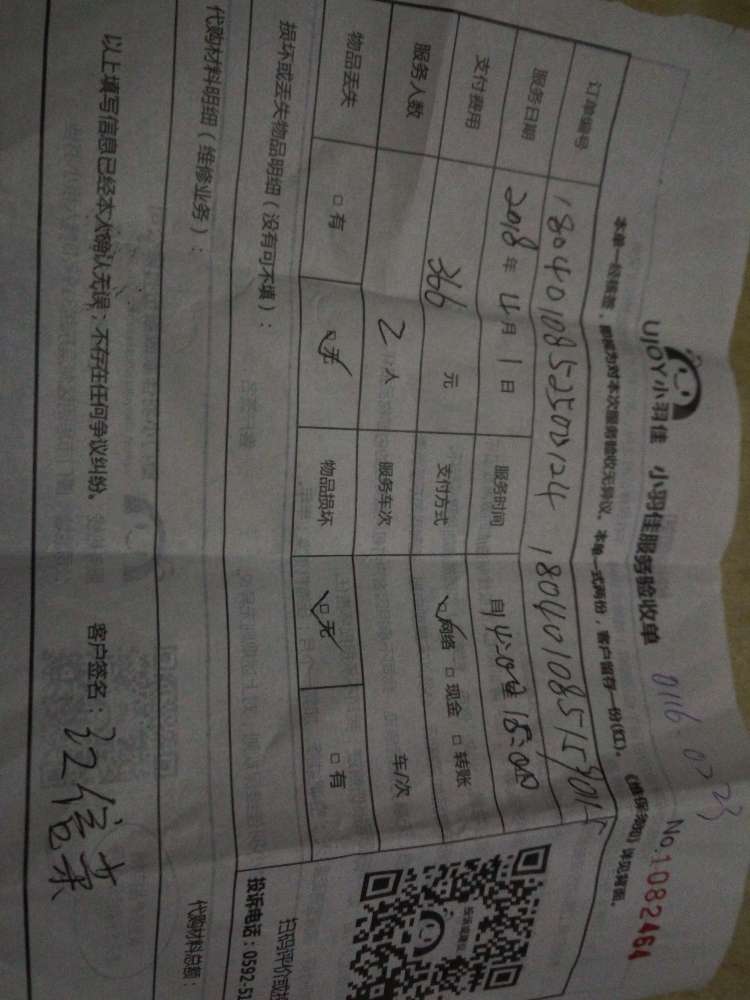 UJOY小羽佳 小羽佳服务验收单
No.1082464
本单一经核签，即视为对本次服务验收无异议。本单一式两份，客户留存一份(红)。《维保须知》详见背面。
订单编号
服务日期 2018年4月1日 服务时间
支付费用 366元 支付方式 网络 现金 □转账
服务人数 2人 服务车次 车/次
物品丢失 □有 □无 物品损坏 □无 □有
损坏或丢失物品明细（没有可不填）：
扫码评价或
代购材料明细（维修业务）：
投诉电话：0592-5
代购材料总额：
以上填写信息已经本人确认无误；不存在任何争议纠纷。 客户签名：